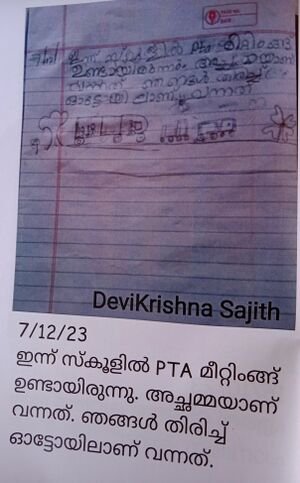 PAGE NO.
DATE
7/12/ ഇന്ന് സ്കൂളിൽ PTA മീറ്റിംങ്ങ്
ഉണ്ടായിരുന്നു. അച്ഛമ്മയാണ്
വന്നത് ഞങ്ങൾ തിരിച്ച്
ഓട്ടോയിലാണ് വന്നത്
DeviKrishna Sajith
7/12/23
ഇന്ന് സ്കൂളിൽ PTA മീറ്റിംങ്ങ്
ഉണ്ടായിരുന്നു. അച്ഛമ്മയാണ്
വന്നത്. ഞങ്ങൾ തിരിച്ച്
ഓട്ടോയിലാണ് വന്നത്.